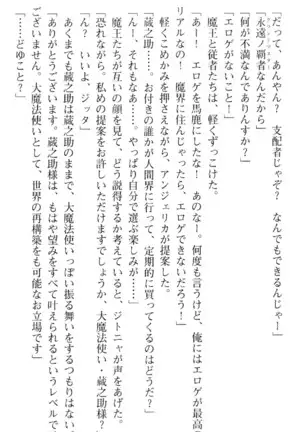 「だって、あんやん？　支配者じゃぞ？　なんでもできるんじゃー」
「永遠の覇者なんだから」
「何が不満なんでありんすか？」
「エロゲがないこと！」
魔王と従者たちは、軽くずっこけた。
「あー！　エロゲを馬鹿にしたな！　あのなー。何度も言うけど、俺にはエロゲが最高
リアルなの！　魔界に住んじゃったら、エロゲできないだろう！」
軽くこめかみを押さえながら、アンジェリカが提案した。
「蔵之助……。お付きの誰かが人間界に行って、定期的に買ってくるのはどうだ？」
「ん！　それもなあ……。やっぱり自分で選ぶ楽しみが……」
魔王たちが互いの顔を見て、どう説得するか考えていると、ジトニャが声をあげた。
「恐れながら。私めの提案をお許しいただけますでしょうか、大魔法使い・蔵之助様？」
「ん？　いいよ、ジッタ」
あくまでも蔵之助は蔵之助のまま、大魔法使いっぽい振る舞いをするつもりはない。
「ありがとうございます。蔵之助様は、もはや望みをすべて叶えられるというレベルで
ございません。大魔法使いとして、世界の再構築をも可能なお立場です」
「……どゆこと？」